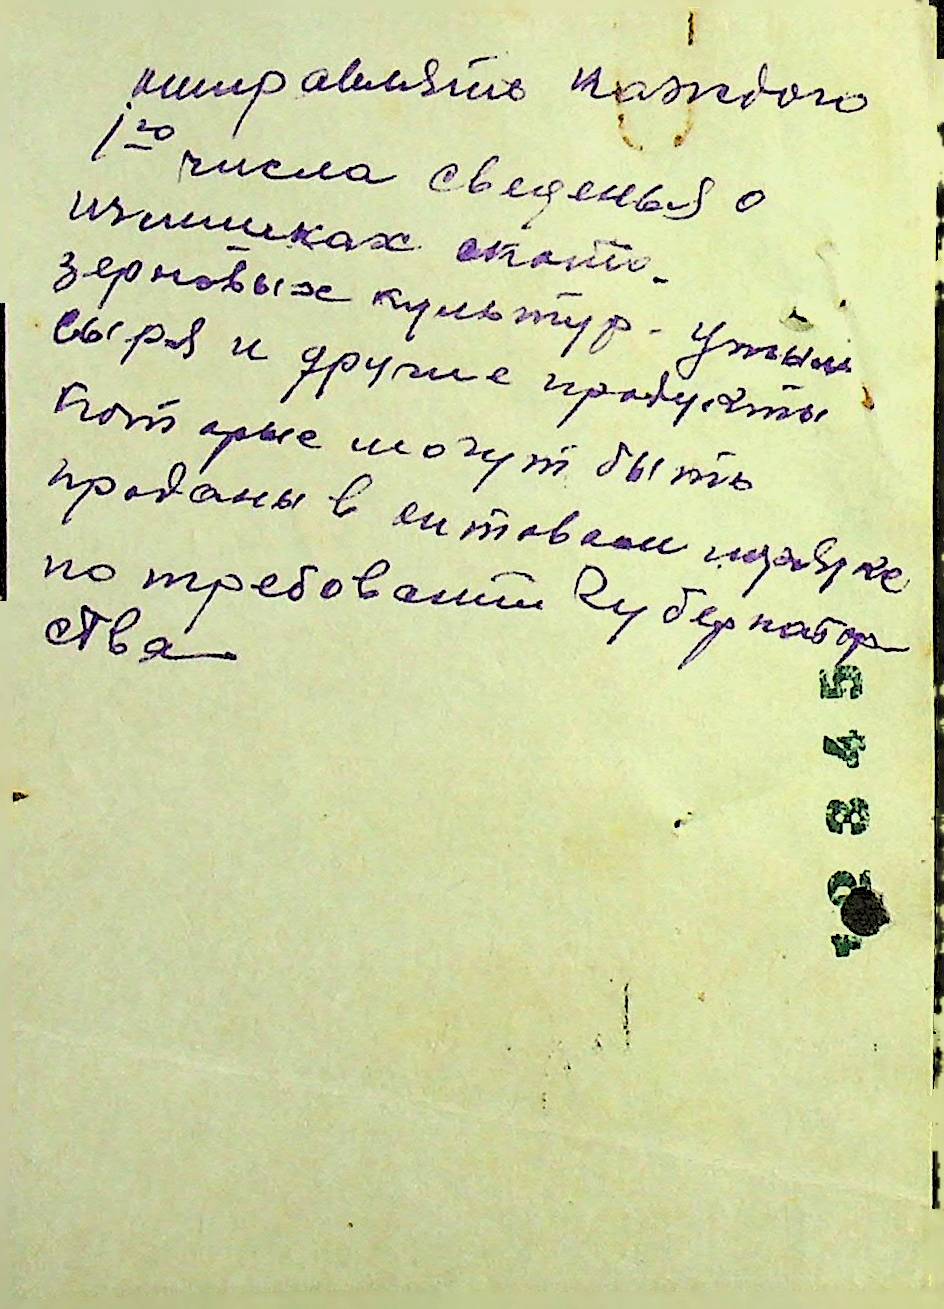 направлять каждого
1го числа сведенья о
излишках скота.
зерновых культур. утиль
сырья и другие продукты
которые могут быть
проданы в порядке
по требовании Губернатор
ства
12845